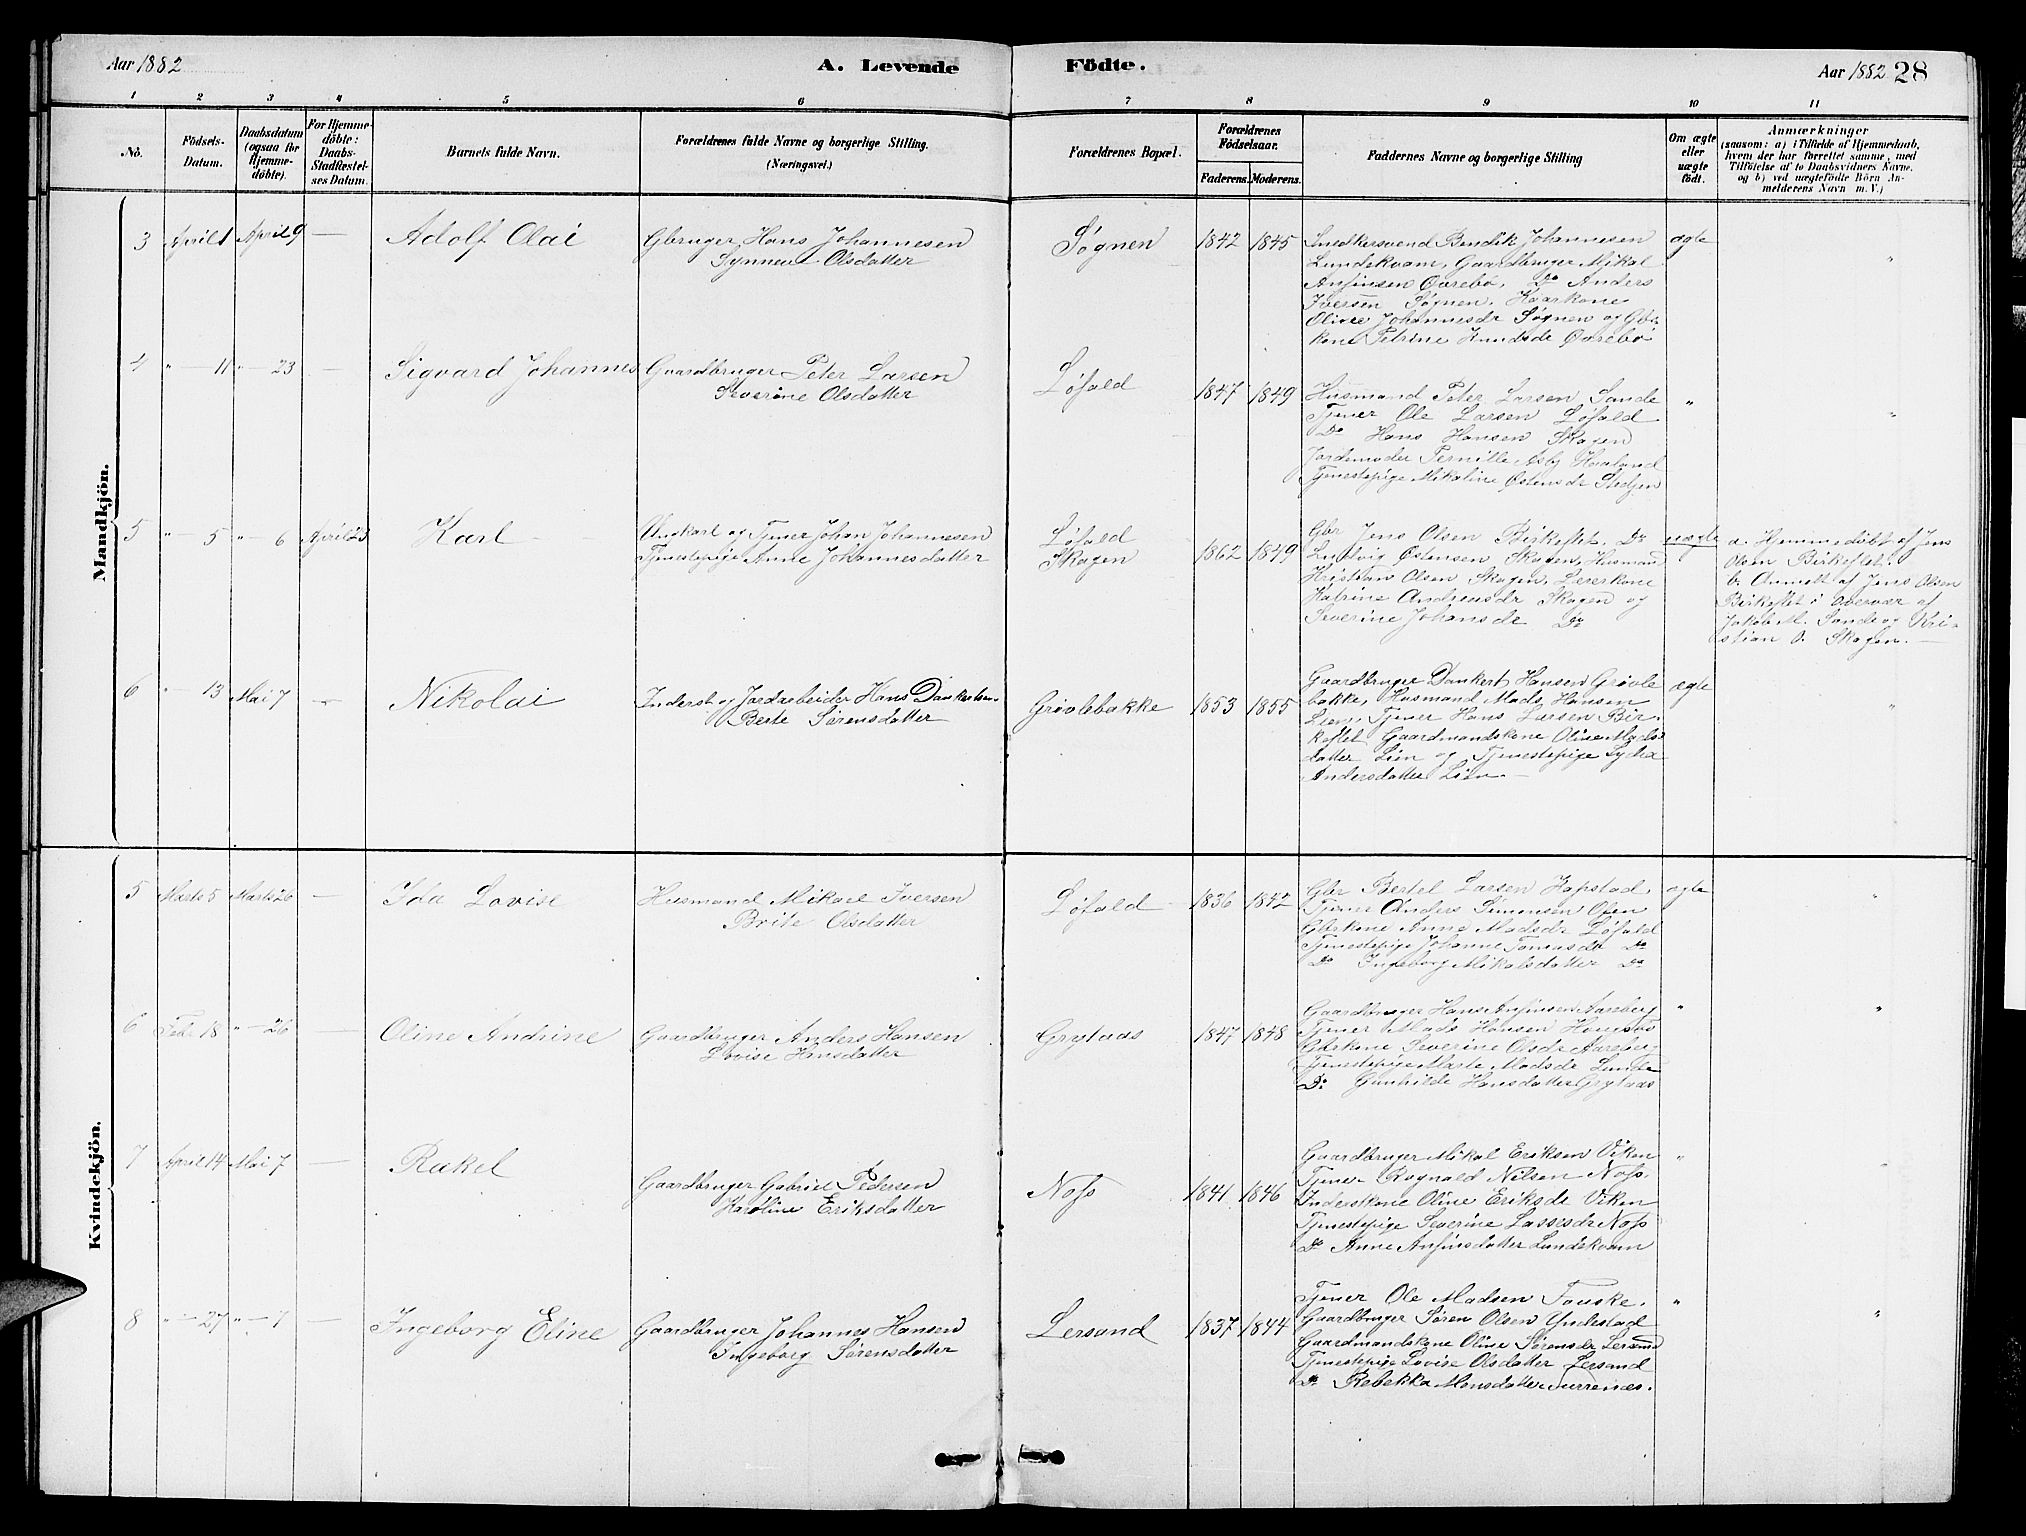 Aar 1882
A. Levende
Födte.
Aar 1882 28
1 2 3 4 5 6 7 8 9 10 11
No.
Födsels-
Datum.
Daabsdatum
(ogsaa for
Hjemme-
döbte).
For Hjemme-
döbte:
Daabs-
Stadfæstel-
ses Datum.
Barnets fulde Navn.
Forældrenes fulde Navne og borgerlige Stilling.
(Næringsvei.)
Forældrenes Bopæl.
Forældrenes
Födselsaar.
Faderens. Moderens.
Faddernes Navne og borgerlige Stilling
Om ægte
eller
uægte
födt.
Anmærkninger
(saasom: a) i Tilfælde af Hjemmedaab,
hvem der har forrettet samme, med
Tilföielse af to Daabsvidners Navne.
og b) ved uægtefödte Börn An-
melderens Navn m. V.)
Mandkjön.
3 April 1 April 9 — Adolf Olai
Gbruger Hans Johannesen
Synneve Olsdatter
Søgnen 1842 1845
Snedkersvend Bendik Johannesen
Lundekvam, Gaardbruger Mikal
Anfinsen Øvrebø, Do Anders
Iversen Søgnen, Kaarkone
Olive Johannesdr Søgnen og Gbr-
kone Petrine Knudsdr Øvrebø
ægte "
4 " — 11 " — 23 — Sigvard Johannes
Gaardbruger Peter Larsen
Severine Olsdatter
Løfald 1847 1849
Husmand Peter Larsen Sande
Tjener Ole Larsen Løfald
Do Hans Hansen Skagen
Jordemoder Pernille Asbj Haaland
Tjenestepige Mikaline Østensdr Stedjen
" "
5 " — 5 " — 6 April 23 Karl
Ungkarl og Tjener Johan Johannesen
Tjenestepige Anne Johannesdatter
Løfald
Skagen
1862 1849
Gbr Jens Olsen Birkeflet. Do
Ludvig Østensen Skagen, Husmand
Kristian Olsen Skagen, Leverkone
Katrine Andreasdr Skagen og
Severine Johansdr Do
uægte
a. Hjemmedøbt af Jens
Olsen Birkeflet.
b. Anmeldt af Jens Olsen
Birkeflet i Overvær af
Jakob M. Sande og Kri-
stian O. Skagen. —
6 " — 13 Mai 7 — Nikolai
Inderst og Jordarbeider Hans Dankertsen
Berte Sørensdatter
Grøvlebakke 1853 1855
Gaardbruger Dankert Hansen Grøvle
bakke, Husmand Mads Hansen
Lien, Tjener Hans Larsen Bir-
keflet Gaardmandskone Oline Mads-
datter Lien og Tjenestepige Lydia
Andersdatter Lien. —
ægte "
Kvindekjön.
5 Marts 5 Marts 26 — Ida Lovise
Husmand Mikael Iversen
Brite Olsdatter
Løfald 1836 1842
Gbr Bertel Larsen Hapstad,
Tjener Anders Simonsen Ofen
Gbrkone Anne Madsdr Løfald
Tjenestepige Johanne Tomasdr Do
Do Ingeborg Mikalsdatter Do
ægte "
6 Febr 18 " — 26 — Oline Andrine
Gaardbruger Anders Hansen
Lovise Hansdatter
Grytaas 1847 1848
Gaardbruger Hans Anfinsen Aareberg
Tjener Mads Hansen
Gbrkone Severine Olsdr Aareberg
Tjenestepige Marte Madsdr Lunde
Do Gunhilde Hansdatter Grytaas
" "
7 April 14 Mai 7 — Rakel
Gaardbruger Gabriel Pedersen
Karoline Eriksdatter
Nofs 1841 1846
Gaardbruger Mikal Eriksen Viken
Tjener Rognald Nilsen Nofs.
Inderskone Oline Eriksdr Viken
Tjenestepige Severine Lassesdr Nofs
Do Anne Anfinsdatter Lundekvam
" "
8 " — 27 " — 7 — Ingeborg Eline
Gaardbruger Johannes Hansen
Ingeborg Sørensdatter
Lersand 1837 1844
Tjener Ole Madsen Fauske.
Gaardbruger Søren Olsen Yndestad
Gaardmandskone Oline Sørensdr Lersand
Tjenestepige Lovise Olsdatter Lersand
Do Rebekka Monsdatter
" "